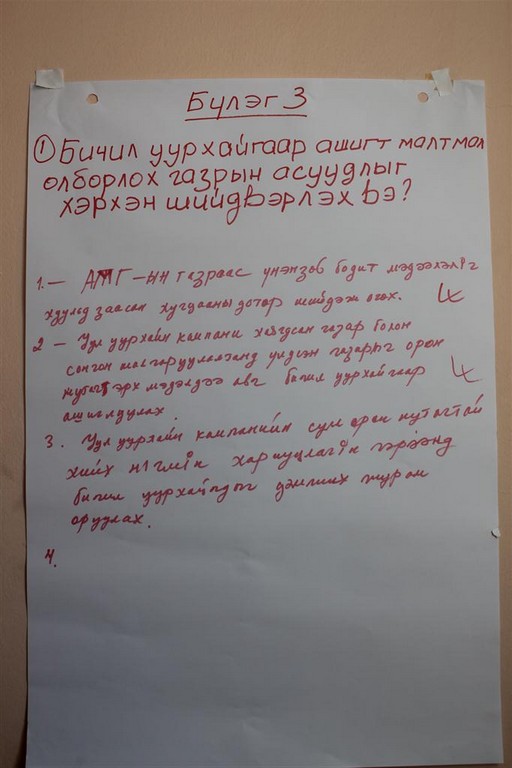 Бүлэг 3
① Бичил уурхайгаар ашигт малтмал
олборлох газрын асуудлыг
хэрхэн шийдвэрлэх вэ?
1. – АМГ-ын газраас үнэн зөв бодит мэдээлэлийг
хуульд заасан хугацааны дотор шийдэж өгөх.
2 – Уул уурхайн компани хаягдсан газар болон
сонгон шалгаруулалтанд үлдсэн газарыг орон
нутаг эрх мэдэлдээ авч бичил уурхайгаар
ашиглуулах.
3. Уул уурхайн компанийн сум орон нутагтай
хийх нийгмийн хариуцлагын гэрээнд
бичил уурхайчдыг дэмжих журам
оруулах.
4.